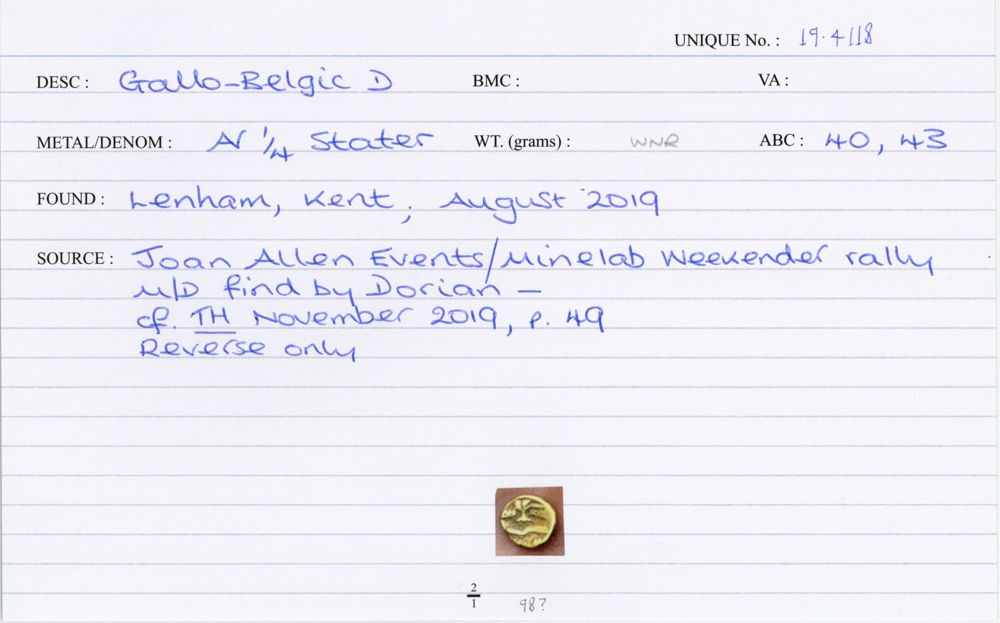 UNIQUE No. : 19.4118
DESC : Gallo-Belgic D BMC : VA :
METAL/DENOM : AV 1/4 Stater WT. (grams) : WNR ABC : 40, 43
FOUND : Lenham, Kent, August 2019
SOURCE : Joan Allen Events/Minelab Weekender rally
M/D find by Dorian –
cf. TH November 2019, p. 49
Reverse only
2/1 98?